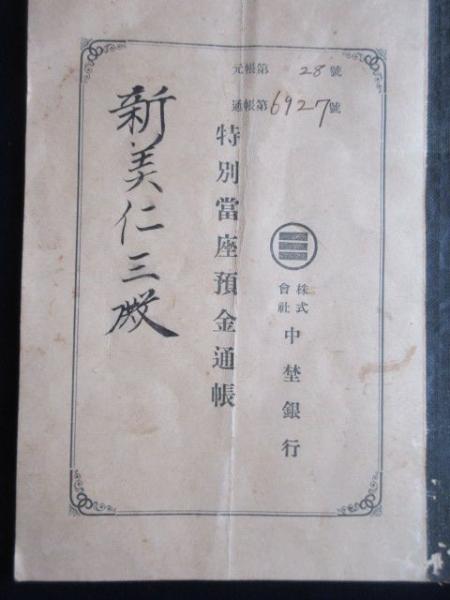 元帳第 28 號
通帳第 6927 號
株式會社中埜銀行
特別當座預金通帳
新美仁三殿